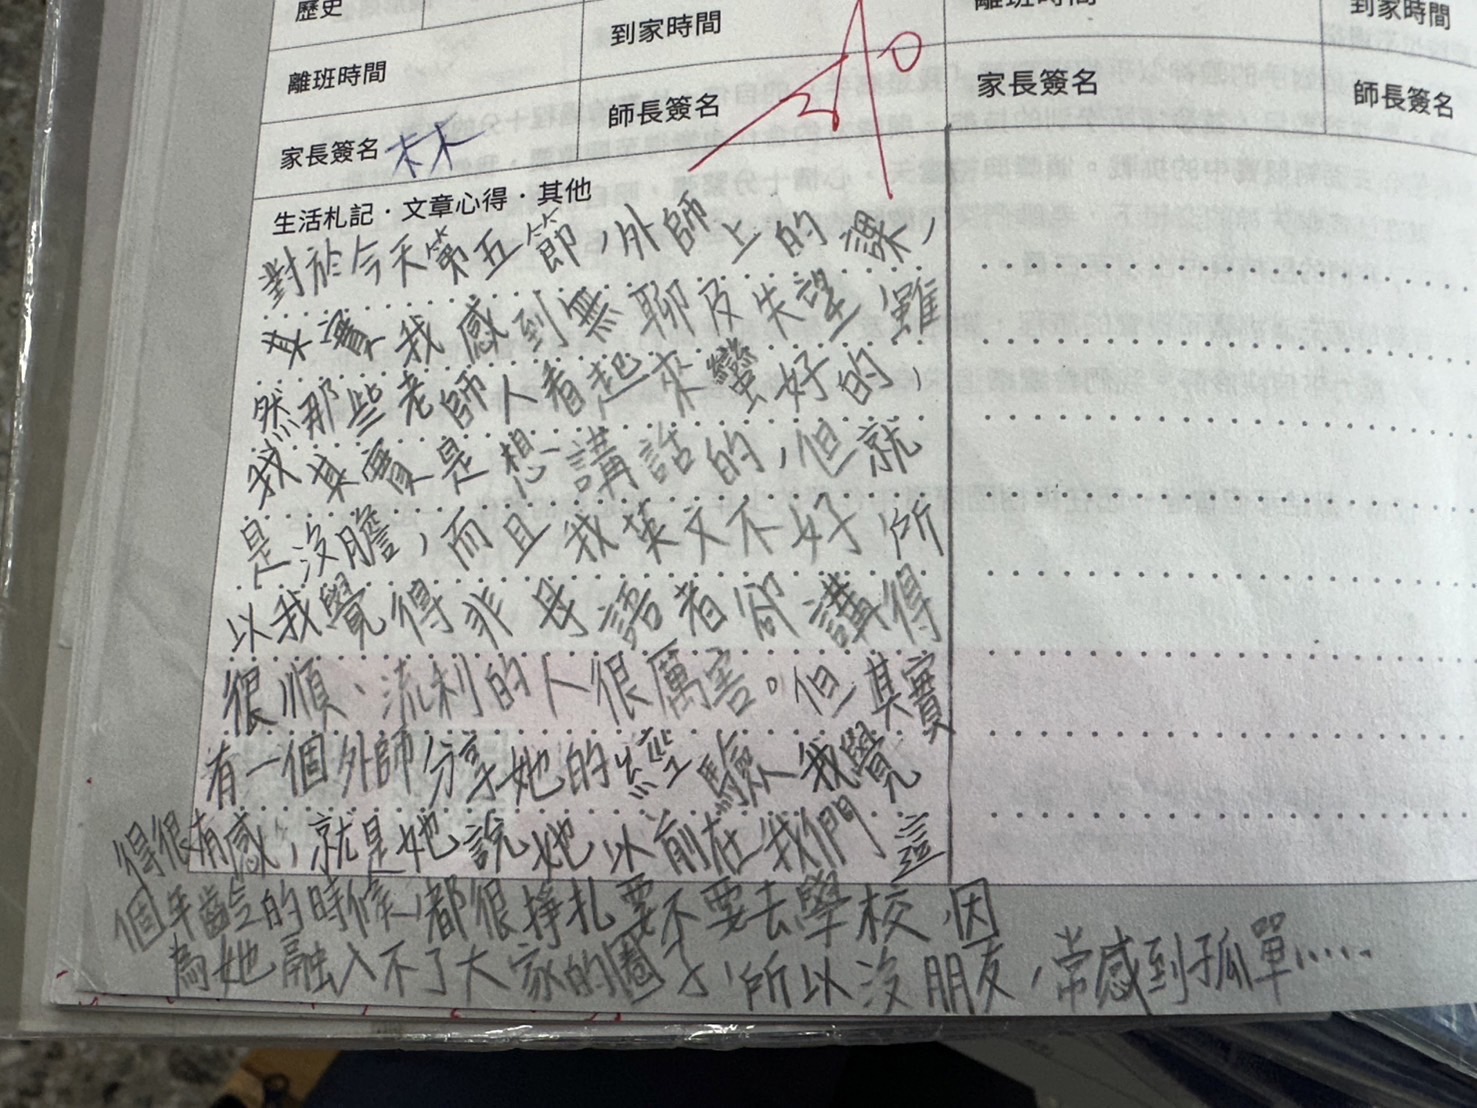 歷史
離班時間
到家時間
離班時間
到家時間
家長簽名 林
師長簽名
家長簽名
師長簽名
生活札記・文章心得・其他
對於今天第五節，外師上的課，
其實我感到無聊及失望，雖
然那些老師人看起來蠻好的，
我其實是想講話的，但就
是沒膽，而且我英文不好，所
以我覺得非母語者卻講得
很順、流利的人很厲害。但其實
有一個外師分享她的經驗，我覺
得很有感，就是她說她以前在我們這
個年齡的時候，都很掙扎要不要去學校，因
為她融入不了大家的圈子，所以沒朋友，常感到孤單……